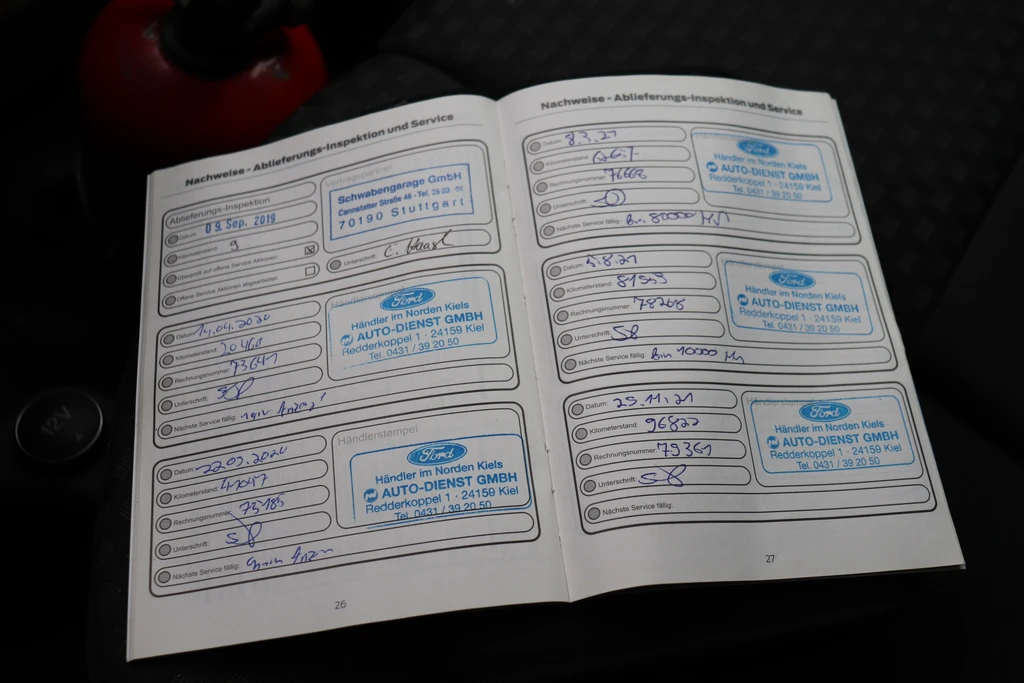 Nachweise - Ablieferungs-Inspektion und Service
Ablieferungs-Inspektion
Datum: 09. Sep. 2019
Kilometerstand: 9
Überprüft auf offene Service Aktionen:
Offene Service Aktionen abgearbeitet:
Vertragspartner
Schwabengarage GmbH
Cannstatter Straße 46 - Tel.
70190 Stuttgart
Unterschrift:
Datum: 14.04.2020
Kilometerstand: 20460
Rechnungsnummer: 73641
Unterschrift:
Nächste Service fällig: Anzeige
Händlerstempel
Ford
Händler im Norden Kiels
AUTO-DIENST GMBH
Redderkoppel 1 · 24159 Kiel
Tel. 0431 / 39 20 50
Datum: 22.09.2020
Kilometerstand:
Rechnungsnummer: 75185
Unterschrift: SP
Nächste Service fällig:
Händlerstempel
Ford
Händler im Norden Kiels
AUTO-DIENST GMBH
Redderkoppel 1 · 24159 Kiel
Tel. 0431 / 39 20 50
26
Nachweise - Ablieferungs-Inspektion und Service
Datum: 8.3.21
Kilometerstand:
Rechnungsnummer: 76668
Unterschrift:
Nächste Service fällig: Bin 80000 Km
Ford
Händler im Norden Kiels
AUTO-DIENST GMBH
Redderkoppel 1 · 24159 Kiel
Tel. 0431 / 39 20 50
Datum: 5.8.21
Kilometerstand: 81553
Rechnungsnummer: 78268
Unterschrift: SP
Nächste Service fällig: Bin 10000 Km
Ford
Händler im Norden Kiels
AUTO-DIENST GMBH
Redderkoppel 1 · 24159 Kiel
Tel. 0431 / 39 20 50
Datum: 25.11.21
Kilometerstand: 96822
Rechnungsnummer: 79361
Unterschrift: SP
Nächste Service fällig:
Händlerstempel
Ford
Händler im Norden Kiels
AUTO-DIENST GMBH
Redderkoppel 1 · 24159 Kiel
Tel. 0431 / 39 20 50
27
12V